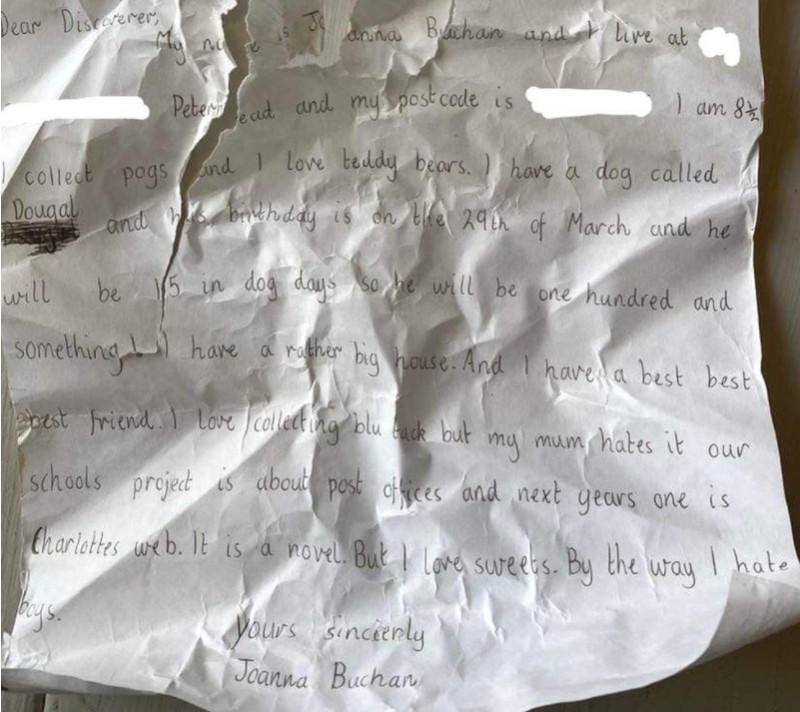 Dear Discoverer,
My name is Joanna Buchan and I live at
Peterhead and my postcode is I am 8½
I collect pogs and I love teddy bears. I have a dog called
Dougal and his birthday is on the 29th of March and he
will be 15 in dog days so he will be one hundred and
something! I have a rather big house. And I have a best best
best friend. I love collecting blu tack but my mum hates it our
schools project is about post offices and next years one is
Charlottes web. It is a novel. But I love sweets. By the way I hate
boys.
yours sincierly
Joanna Buchan